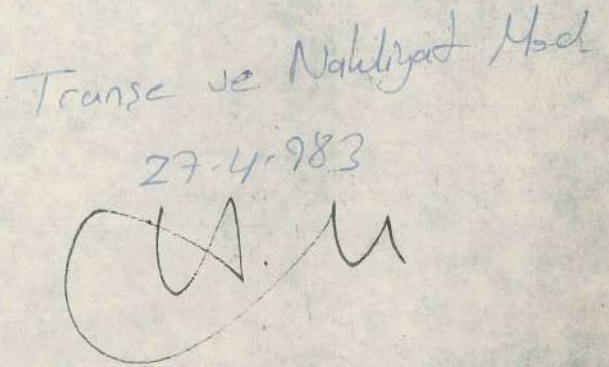 Tranşe ve Nakliyat Mad
27.4.983